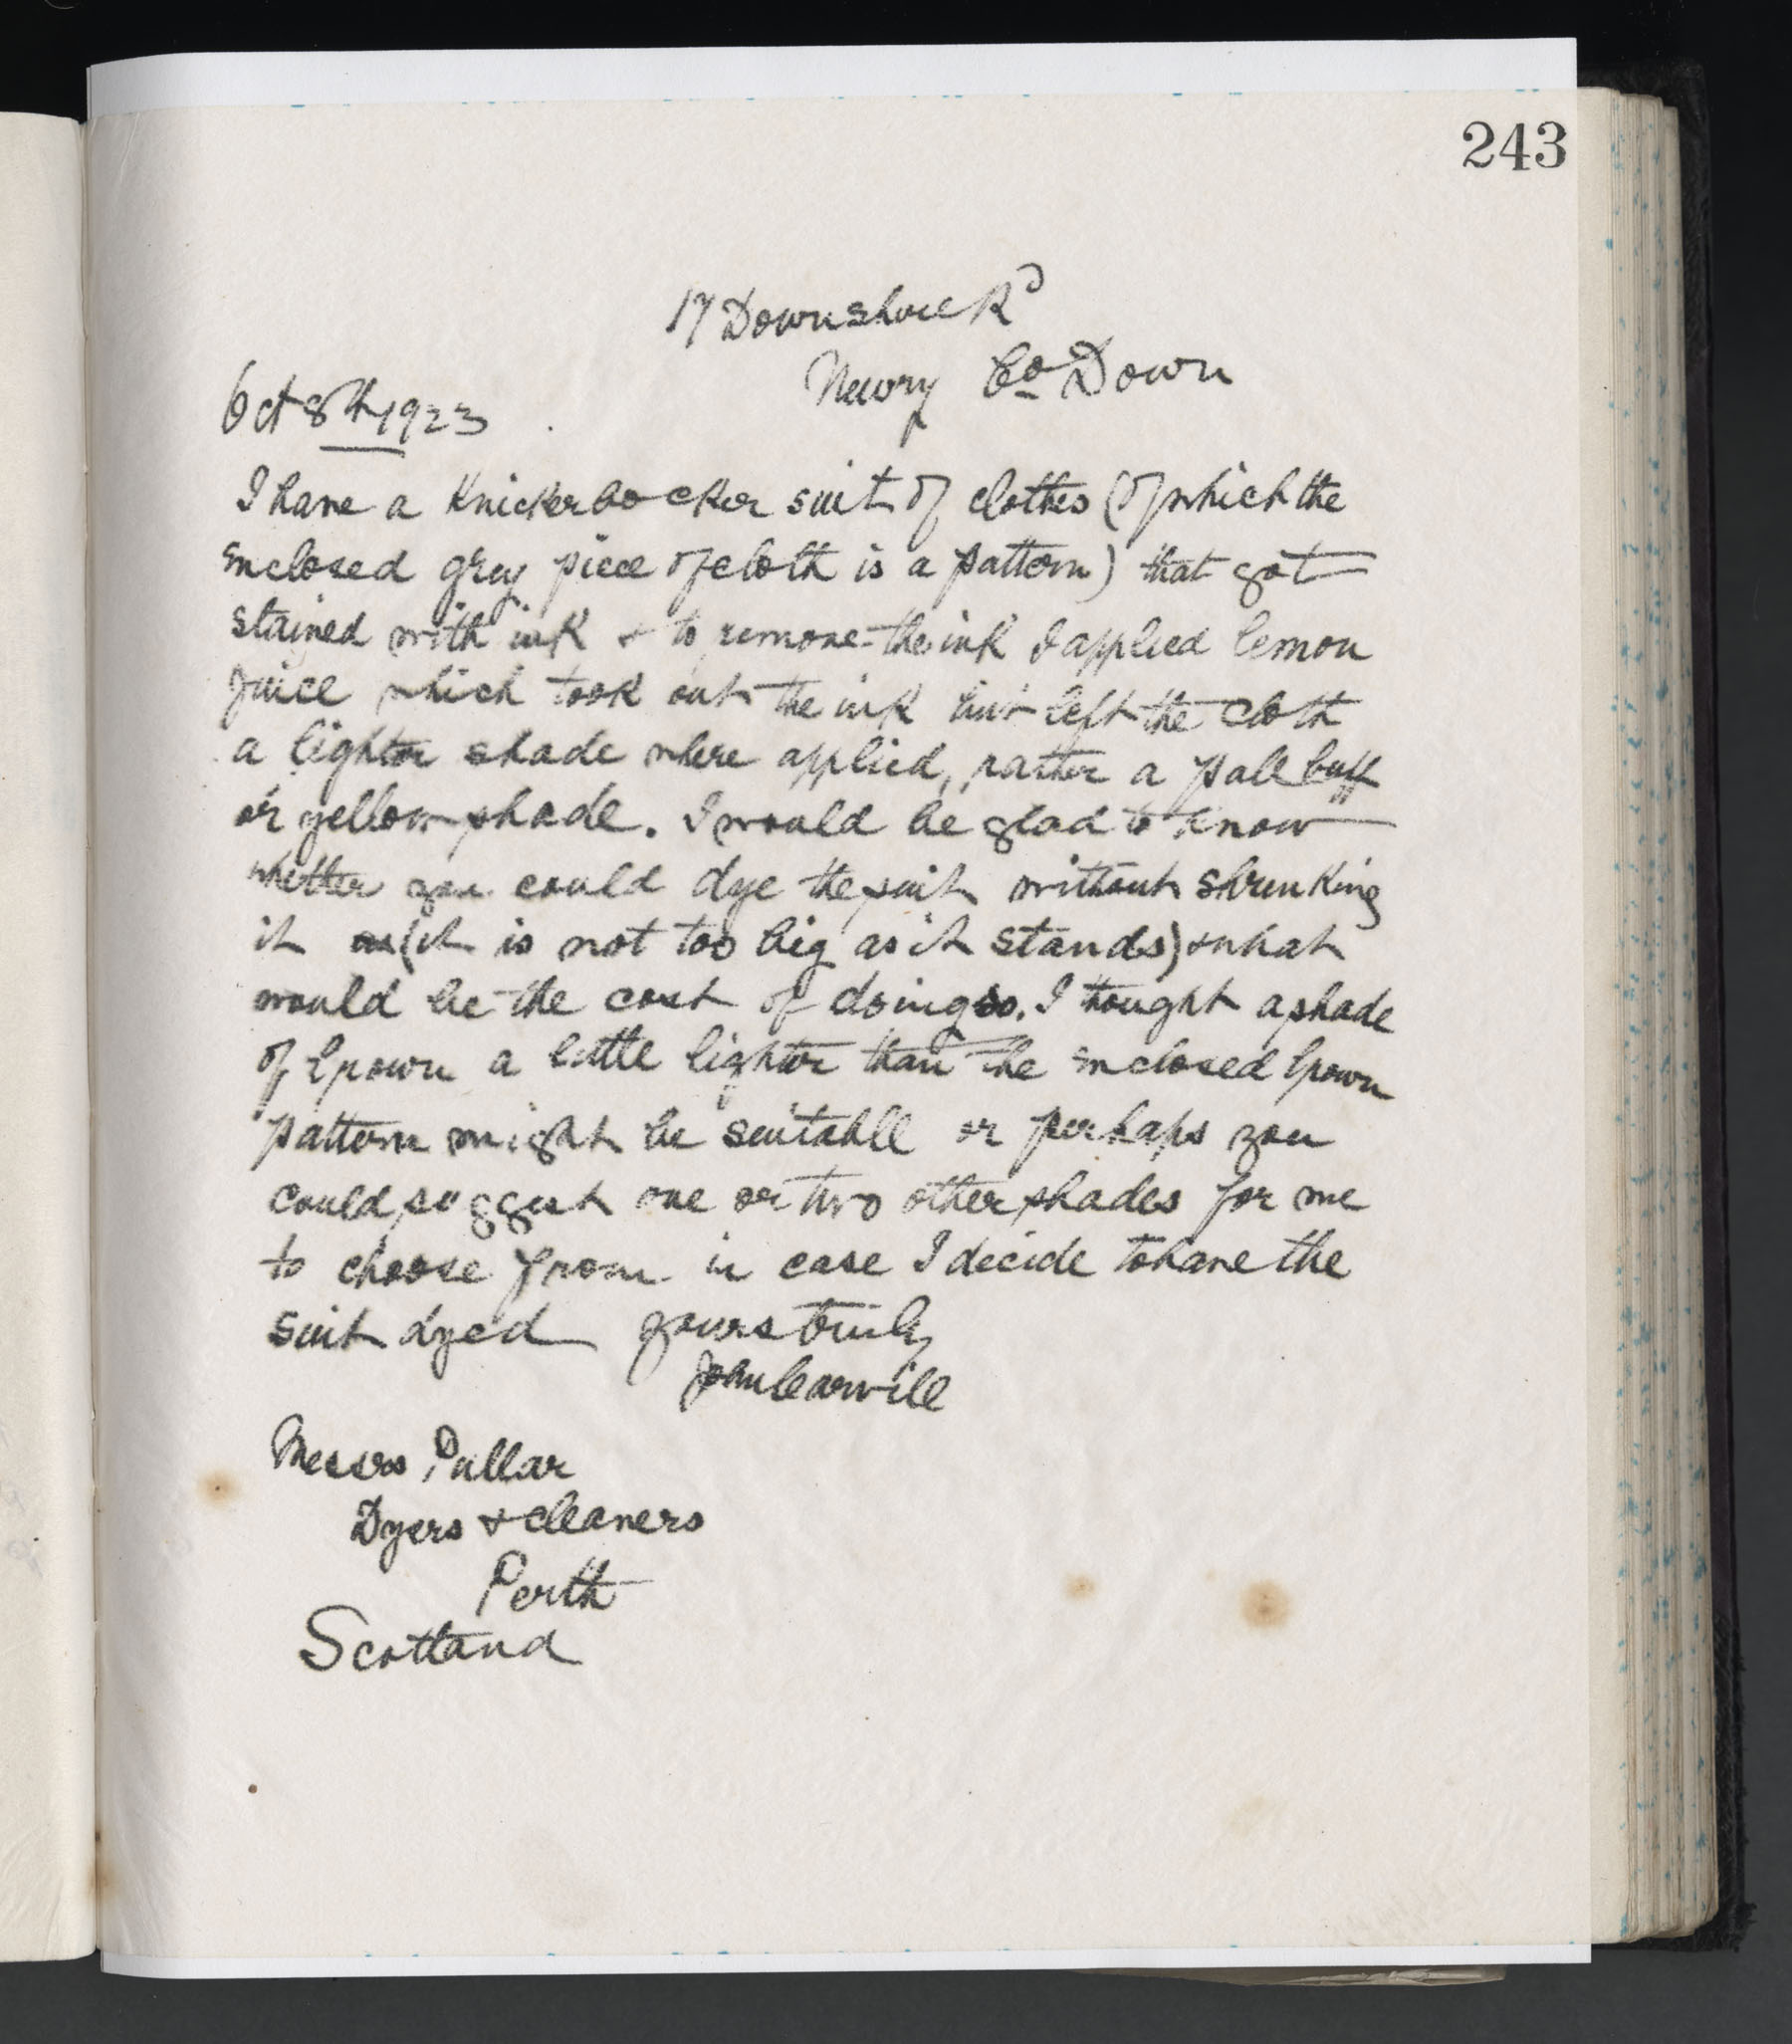 243
17 Downshire Rd
Newry Co Down
Oct 8th 1923
I have a Knickerbocker suit of clothes (of which the
enclosed grey piece of cloth is a pattern) that got
stained with ink & to remove the ink I applied lemon
juice which took out the ink but left the cloth
a lighter shade where applied, rather a pale buff
or yellow shade. I would be glad to know
whether you could dye the suit without shrinking
it as (it is not too big as it stands) & what
would be the cost of doing so. I thought a shade
of brown a little lighter than the enclosed brown
pattern might be suitable or perhaps you
could suggest one or two other shades for me
to choose from in case I decide to have the
suit dyed yours truly
John Carvill
Messrs Pullar
Dyers & cleaners
Perth
Scotland